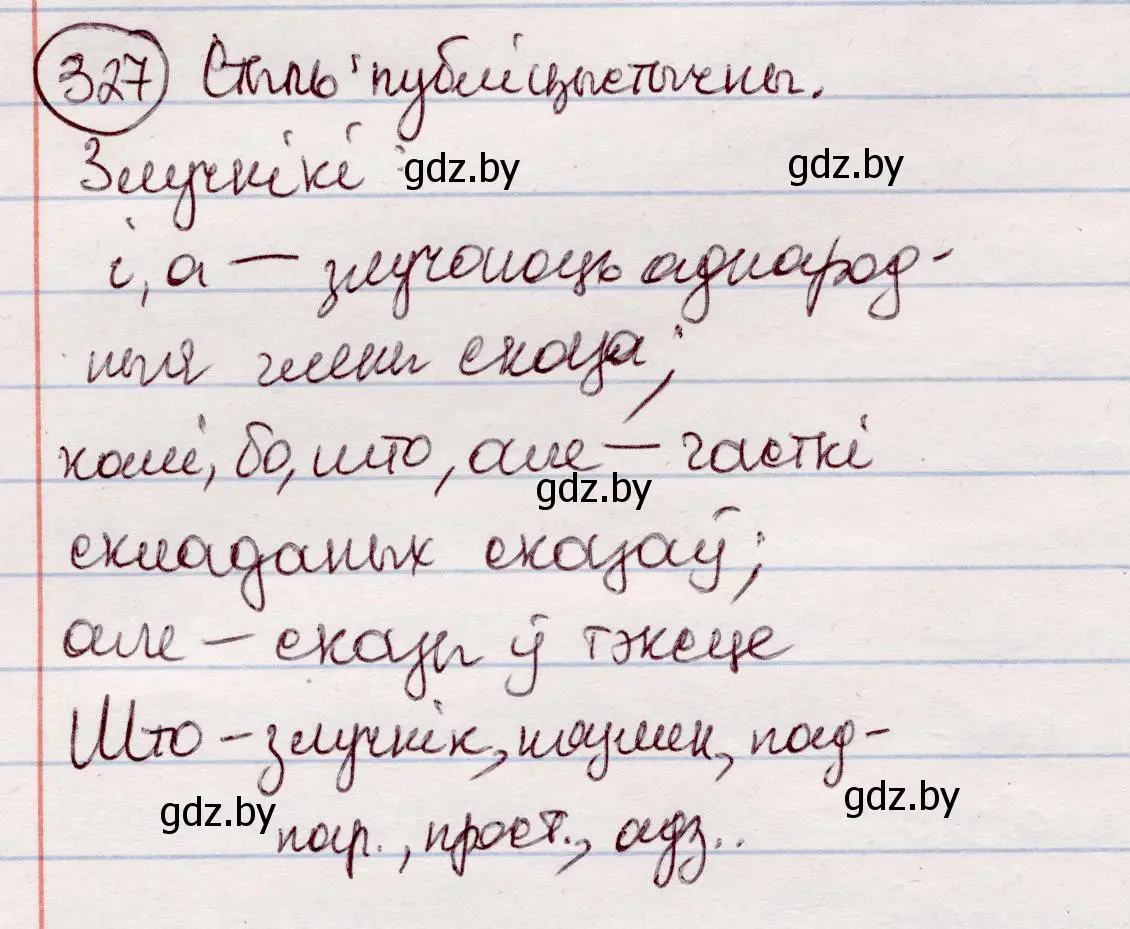 327 Стыль публіцыстычны.
Злучнікі :
gdz.by
gdz.by
і, а — злучаюць аднарод-
ныя члены сказа;
калі, бо, што, але — часткі
gdz.by
складаных сказаў;
але — сказы ў тэксце
Што – злучнік,
пад-
gdz.by
gdz.by
пар., прост., адз..